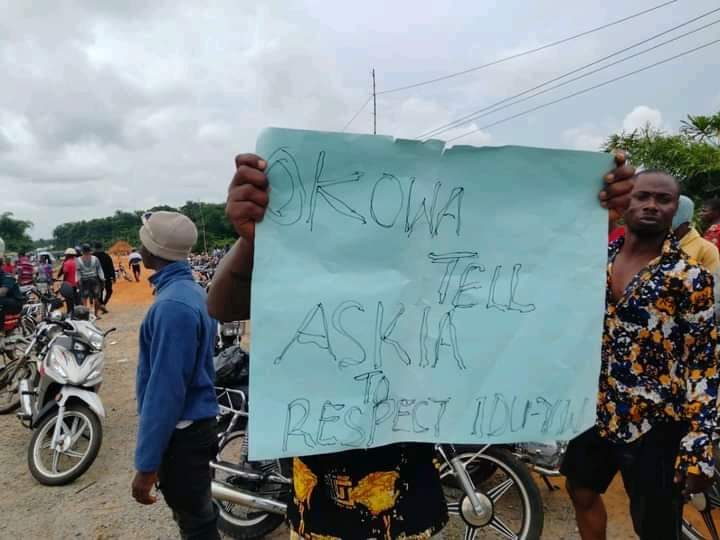 OKOWA
TELL
ASKIA
TO
RESPECT IDU-YIN